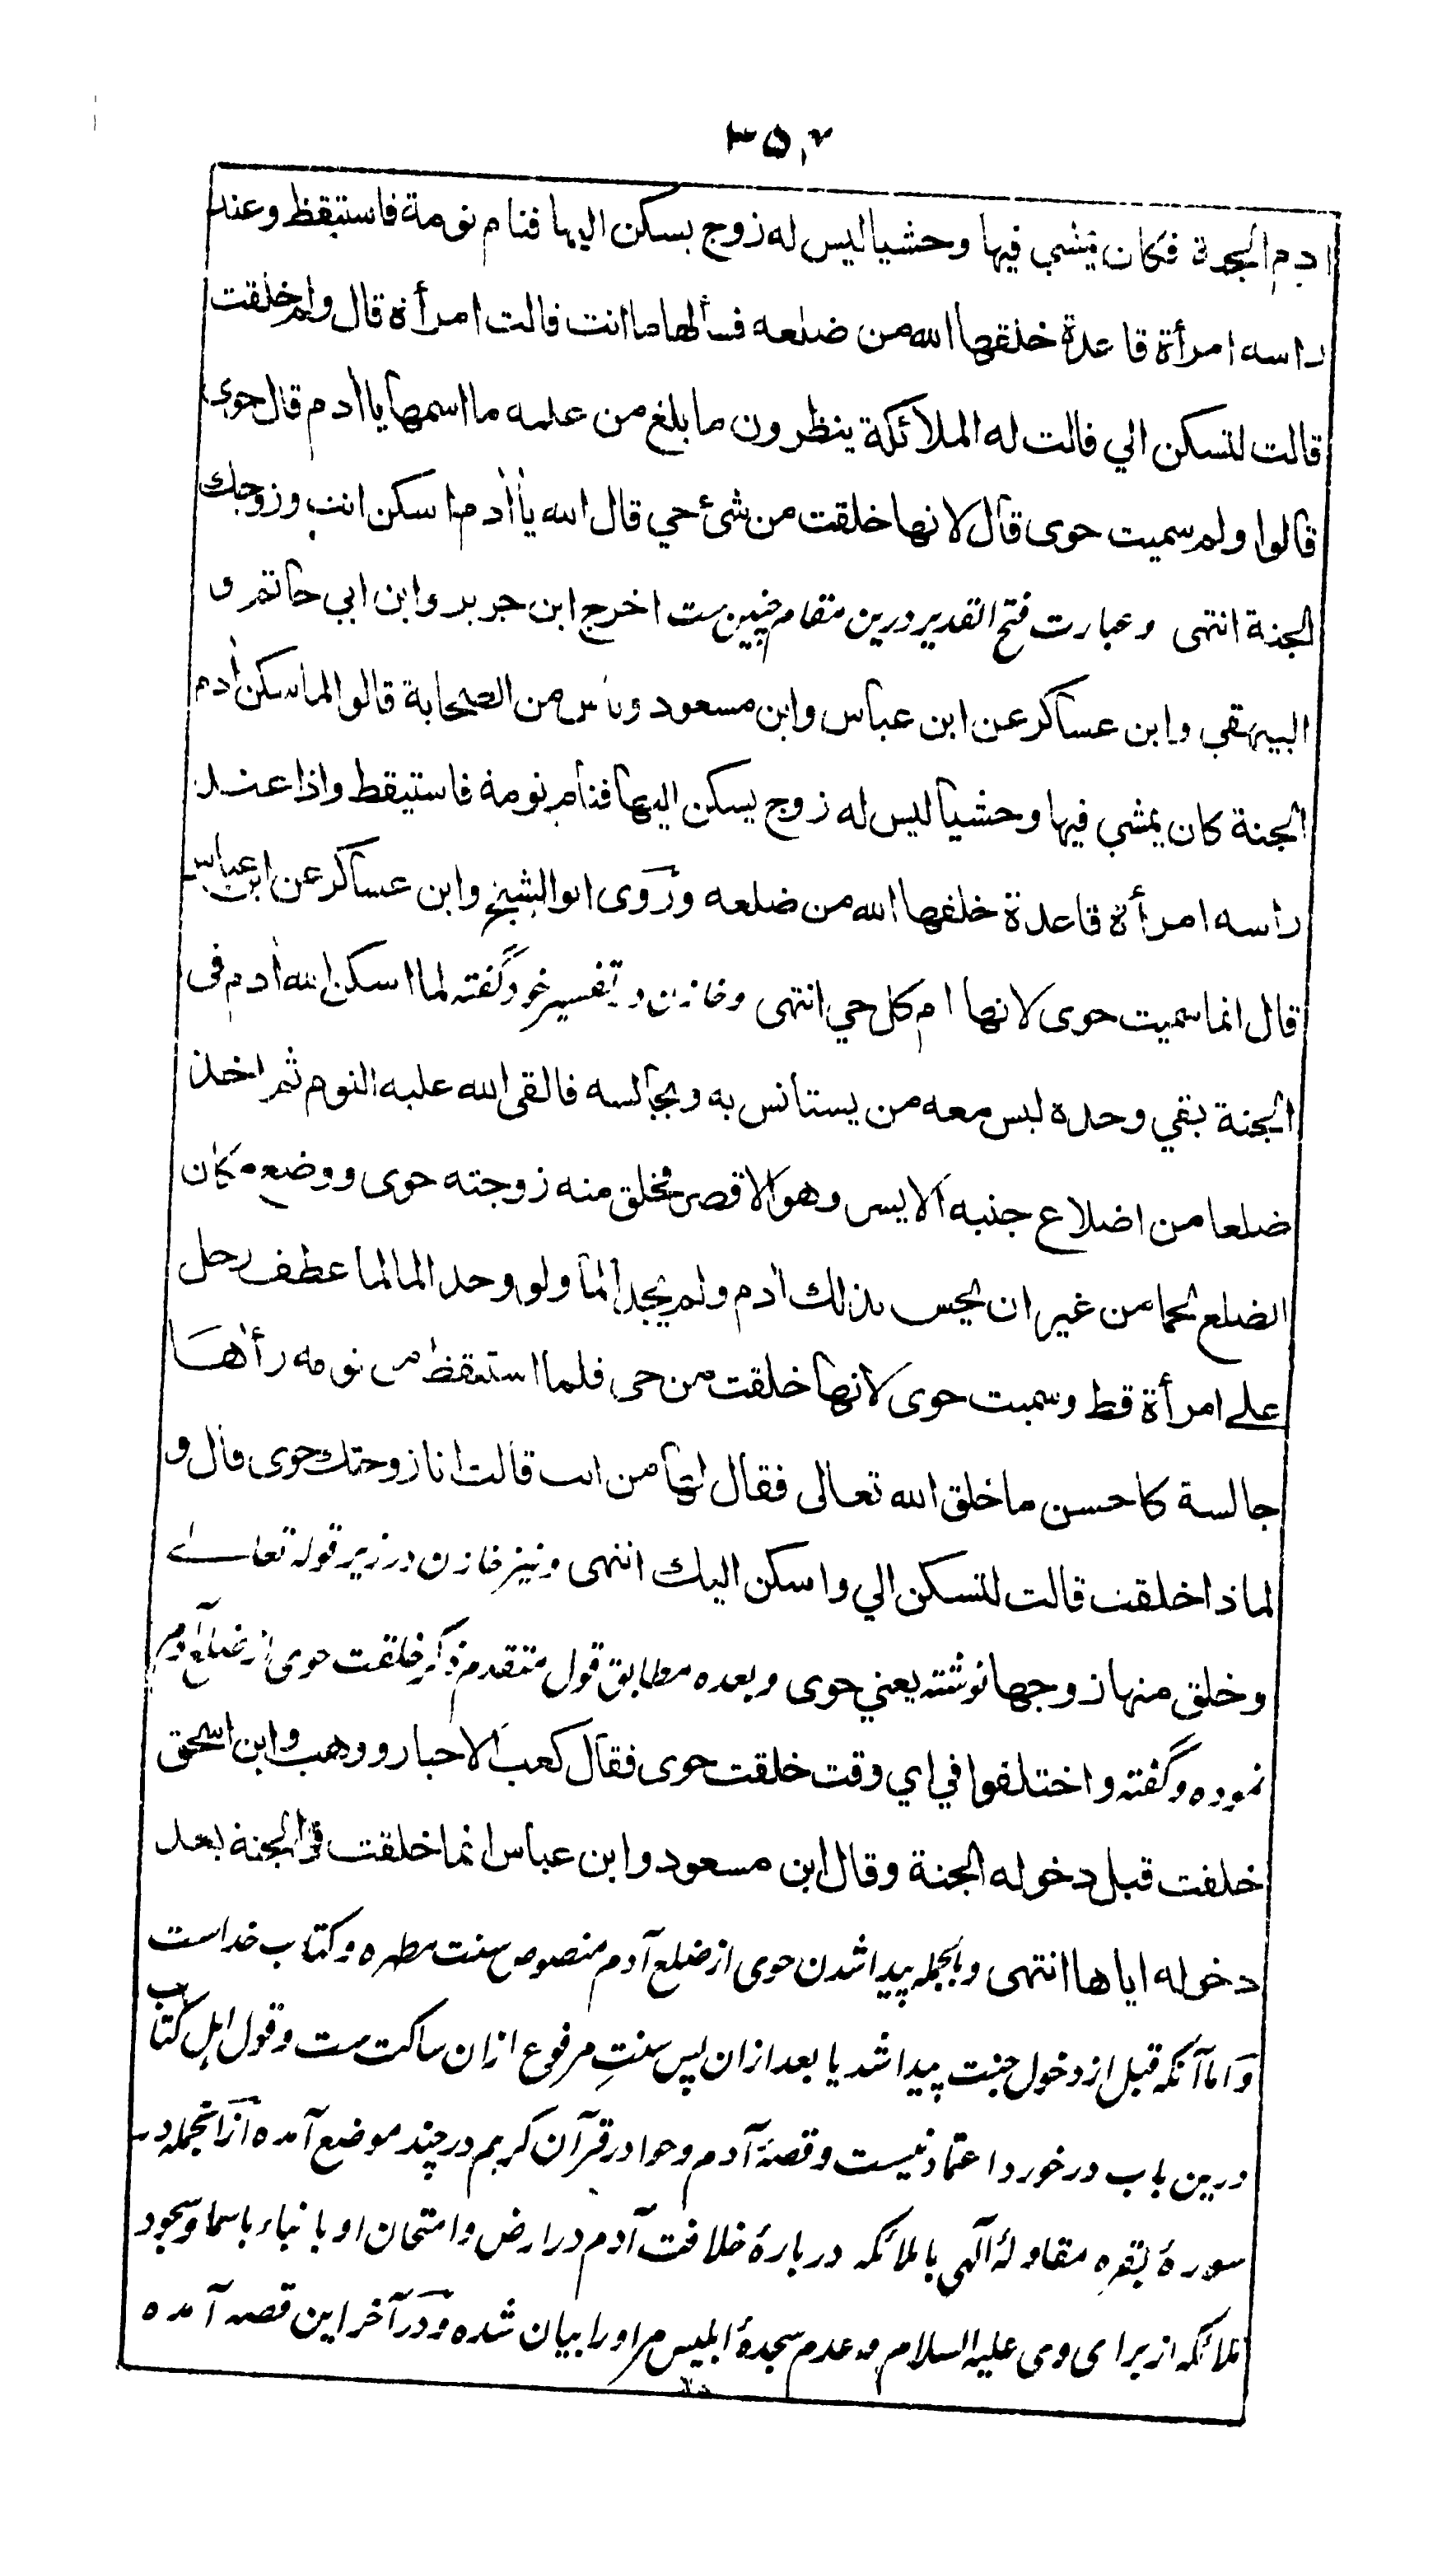 ادم الجنة فكان يمشي فيها وحشيا ليس له زوج يسكن اليها فنام نومة فاستيقظ وعند
راسه امرأة قاعدة خلقها الله من ضلعه فسألها ما انت قالت امرأة قال ولم خلقت
قالت لتسكن الي قالت له الملائكة ينظرون ما بلغ من علمه ما اسمها يا ادم قال حوى
قالوا ولم سميت حوى قال لانها خلقت من شئ حي قال الله يا ادم اسكن انت وزوجك
الجنة انتهى وعبارت فتح القدير درين مقام چنين ست اخرج ابن جرير وابن ابي حاتم و
البيهقي وابن عساكر عن ابن عباس وابن مسعود وناس من الصحابة قالوا لما سكن أدم
الجنة كان يمشي فيها وحشيا ليس له زوج يسكن اليها فنام نومة فاستيقظ واذا عند
راسه امرأة قاعدة خلقها الله من ضلعه وروى ابو الشيخ وابن عساكر عن ابن عباس
قال انما سميت حوى لانها ام كل حي انتهى وخازن در تفسير خود گفته لما اسكن الله أدم فى
الجنة بقي وحده ليس معه من يستأنس به ويجالسه فالقى الله عليه النوم ثم اخذ
ضلعا من اضلاع جنبه الايسر وهو الاقصر فخلق منه زوجته حوى ووضع مكان
الضلع لحما من غير ان يحس بذلك أدم ولم يجد الما ولو وجد الما لما عطف رجل
على امرأة قط وسميت حوى لانها خلقت من حي فلما استيقظ من نومه رأها
جالسة كاحسن ما خلق الله تعالى فقال لها من انت قالت انا زوجتك حوى قال و
لماذا خلقت قالت لتسكن الي واسكن اليك انتهى ونيز خازن در زير قوله تعالے
وخلق منها زوجها نوشته يعني حوى وبعده مطابق قول متقدم ذكر خلقت حوى از ضلع آدم
نموده وگفته واختلفوا في اي وقت خلقت حوى فقال كعب الاحبار ووهب وابن اسحق
خلقت قبل دخوله الجنة وقال ابن مسعود وابن عباس انما خلقت فى الجنة بعد
دخوله اياها انتهى وبالجمله پيدا شدن حوى از ضلع آدم منصوص سنت مطهره وكتاب خداست
واما آنكه قبل از دخول جنت پيدا شد يا بعد ازان پس سنتِ مرفوع ازان ساكت ست وقول اہل كتاب
درين باب درخورد اعتماد نيست وقصۀ آدم وحوا در قرآن كريم در چند موضع آمده ازانجمله در
سورۀ بقره مقاولۀ آلهى با ملائكه دربارۀ خلافت آدم در ارض وامتحان او با نباء باسما وسجود
ملائكه از براى وى عليه السلام وعدم سجدۀ ابليس مر او را بيان شده ودر آخر اين قصه آمده